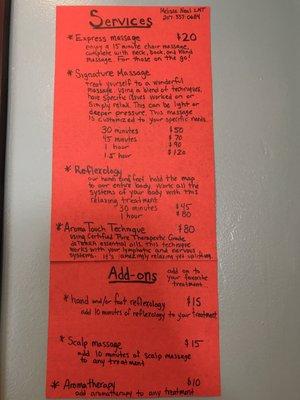 Services
Melissa Neal LMT
217 553-0684
* Express massage $20
enjoy a 15 minute chair massage,
complete with neck, back, and hand
massage. For those on the go!
* Signature Massage
treat yourself to a wonderful
massage. Using a blend of techniques,
have specific issues worked on or
simply relax. This can be light or
deeper pressure. This massage
is customized to your specific needs.
30 minutes $50
45 minutes $70
1 hour $90
1.5 hour $120
* Reflexology
our hands and feet hold the map
to our entire body. Work all the
systems of your body with this
relaxing treatment
30 minutes $45
1 hour $80
* AromaTouch Technique $80
using Certified Pure Therapeutic Grade
essential oils. This technique
works with your lymphatic and nervous
systems. It's amazingly relaxing yet uplifting.
Add-ons
add on to
your favorite
treatment
* hand and/or foot reflexology $15
add 10 minutes of reflexology to your treatment
* Scalp massage $15
add 10 minutes of scalp massage
to any treatment
* Aromatherapy $10
add aromatherapy to any treatment